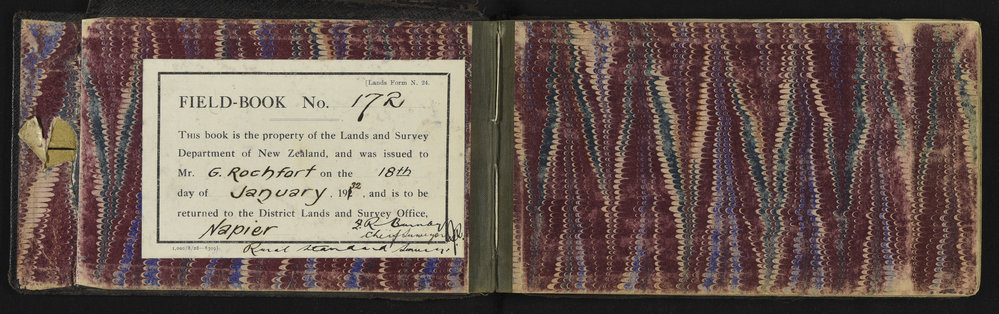 [Lands Form N. 24.
FIELD-BOOK No. 17R
This book is the property of the Lands and Survey
Department of New Zealand, and was issued to
Mr. G. Rochfort on the 18th
day of January, 1932, and is to be
returned to the District Lands and Survey Office,
Napier
Chief Surveyor
Rural Standard